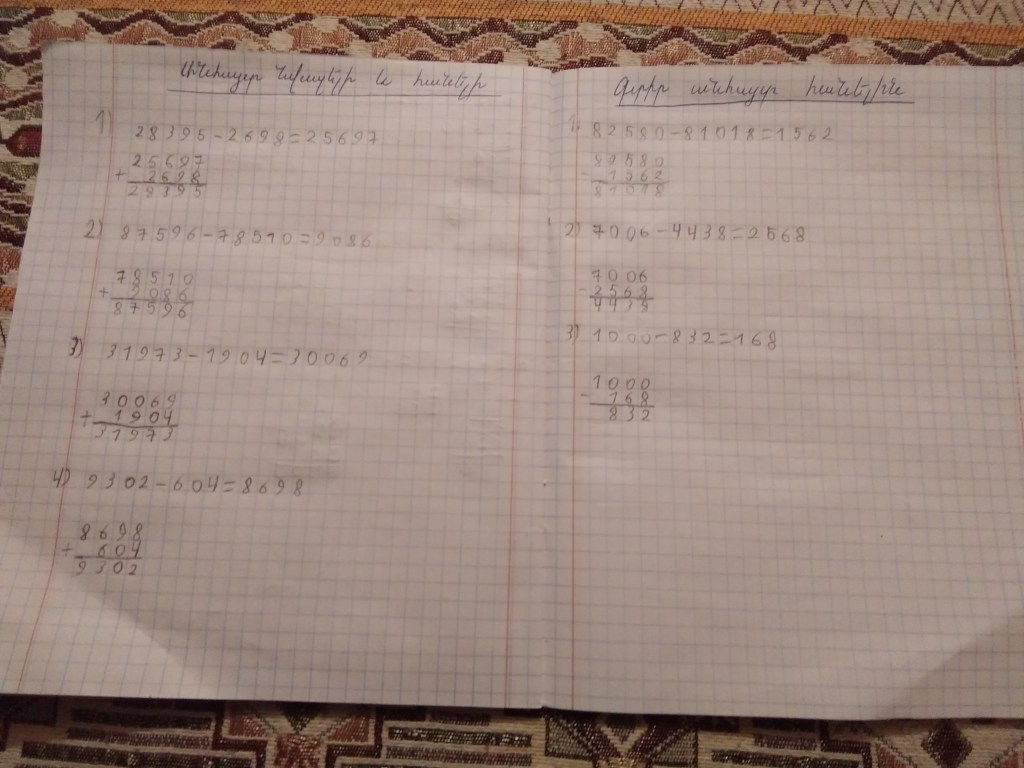 Անհայտ նվազելի և հանելի
1) 28395-2698=25697
25697
+ 2698
28395
2) 87596-78510=9086
78510
+ 9086
87596
3) 31973-1904=30069
30069
+ 1904
31973
4) 9302-604=8698
8698
+ 604
9302
Գտիր անհայտ հանելին
1) 82580-81018=1562
82580
- 1562
81018
2) 7006-4438=2568
7006
- 2568
4438
3) 1000-832=168
1000
- 168
832